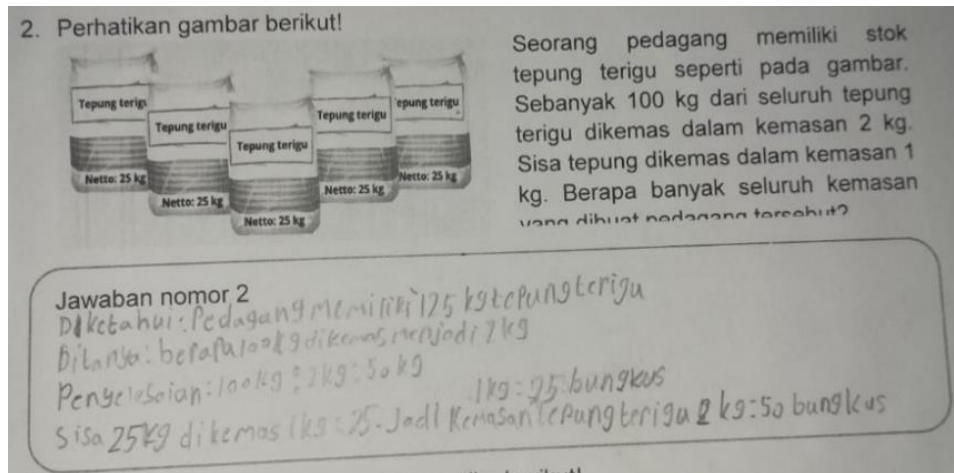 2. Perhatikan gambar berikut!
Tepung terigu
Tepung terigu
Tepung terigu
Tepung terigu
epung terigu
Netto: 25 kg
Netto: 25 kg
Netto: 25 kg
Netto: 25 kg
Netto: 25 kg
Seorang pedagang memiliki stok
tepung terigu seperti pada gambar.
Sebanyak 100 kg dari seluruh tepung
terigu dikemas dalam kemasan 2 kg.
Sisa tepung dikemas dalam kemasan 1
kg. Berapa banyak seluruh kemasan
yang dibuat pedagang tersebut?
Jawaban nomor 2
Diketahui: Pedagang memiliki 125 kg tepung terigu
Ditanya: berapa 100 kg dikemas menjadi 2 kg
Penyelesaian: 100 kg : 2 kg : 50 kg
1 kg : 25 bungkus
Sisa 25 kg dikemas 1 kg : 25. Jadi Kemasan tepung terigu 2 kg : 50 bungkus